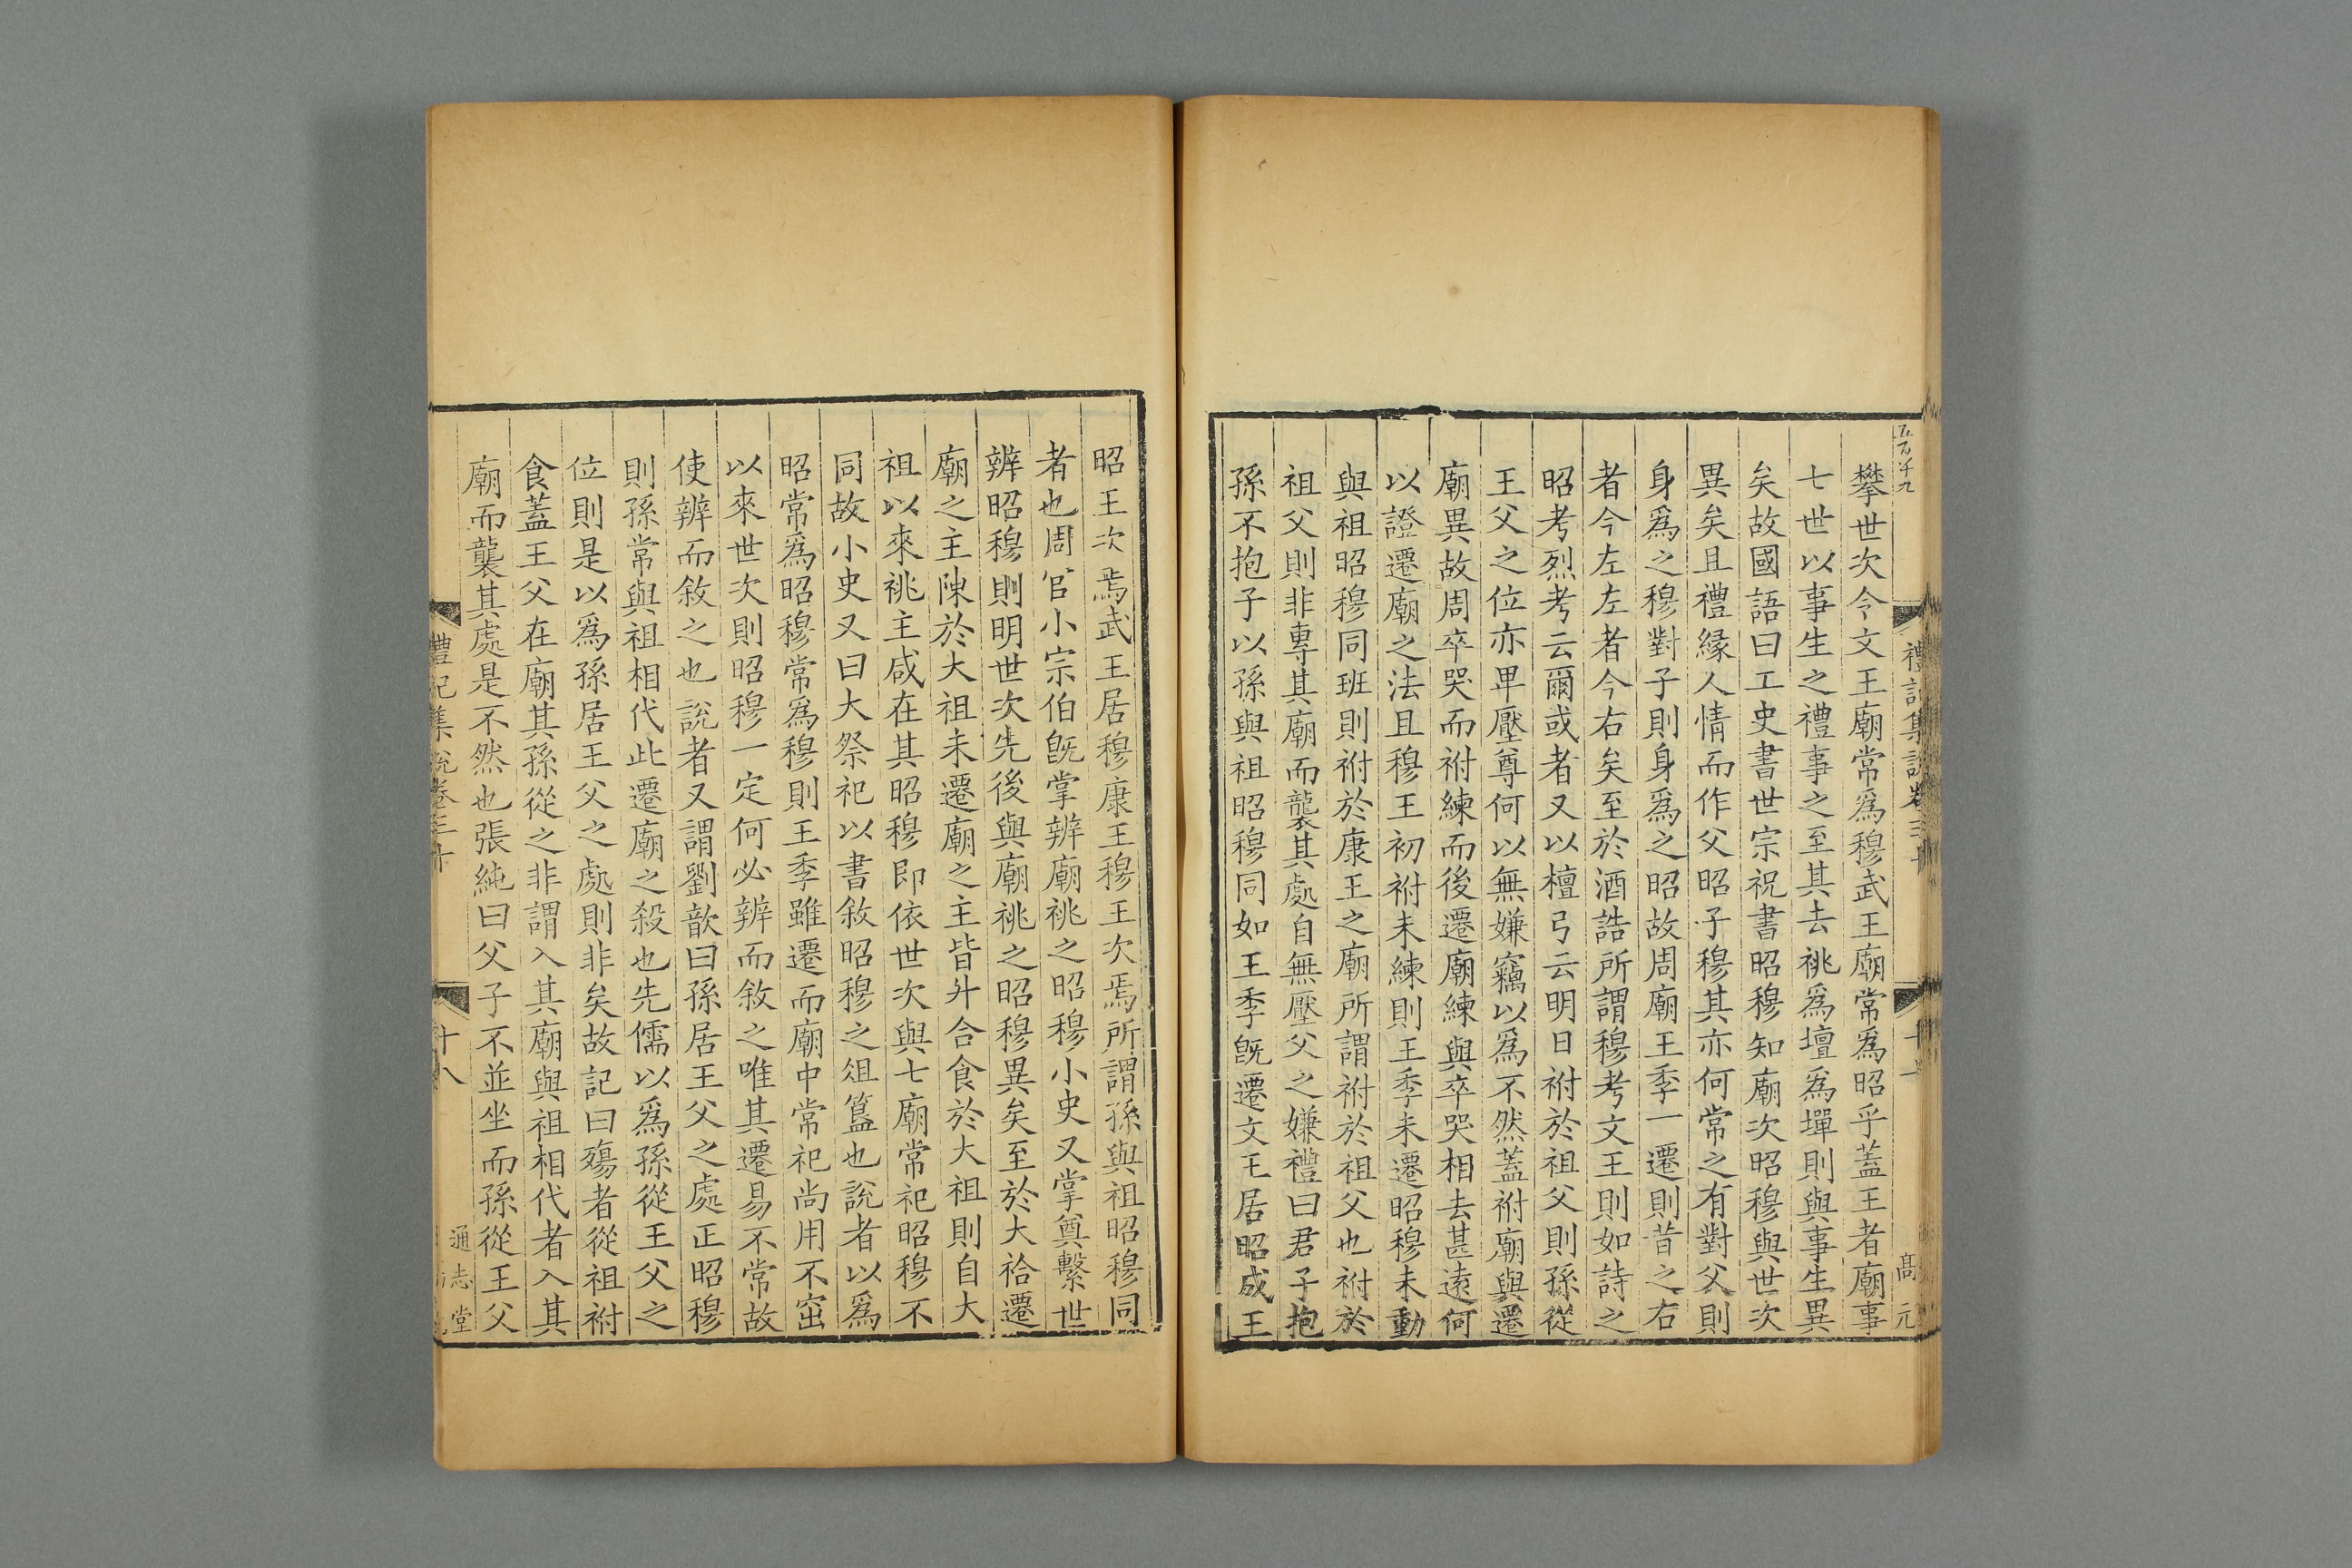 攀世次令文王廟常爲穆武王廟常爲昭乎蓋王者廟事
七世以事生之禮事之至其去祧爲壇爲墠則與事生異
矣故國語曰工史書世宗祝書昭穆知廟次昭穆與世次
異矣且禮緣人情而作父昭子穆其亦何常之有對父則
身爲之穆對子則身爲之昭故周廟王季一遷則昔之右
者今左左者今右矣至於酒誥所謂穆考文王則如詩之
昭考烈考云爾或者又以檀弓云明日祔於祖父則孫從
王父之位亦卑壓尊何以無嫌竊以爲不然蓋祔廟與遷
廟異故周卒哭而祔練而後遷廟練與卒哭相去甚遠何
以證遷廟之法且穆王初祔未練則王季未遷昭穆未動
與祖昭穆同班則祔於康王之廟所謂祔於祖父也祔於
祖父則非專其廟而襲其處自無壓父之嫌禮曰君子抱
孫不抱子以孫與祖昭穆同如王季旣遷文王居昭成王
昭王次焉武王居穆康王穆王次焉所謂孫與祖昭穆同
者也周官小宗伯旣掌辨廟祧之昭穆小史又掌奠繫世
辨昭穆則明世次先後與廟祧之昭穆異矣至於大祫遷
廟之主陳於大祖未遷廟之主皆升合食於大祖則自大
祖以來祧主咸在其昭穆即依世次與七廟常祀昭穆不
同故小史又曰大祭祀以書敘昭穆之俎簋也說者以爲
昭常爲昭穆常爲穆則王季雖遷而廟中常祀尚用不窋
以來世次則昭穆一定何必辨而敘之唯其遷易不常故
使辨而敘之也說者又謂劉歆曰孫居王父之處正昭穆
則孫常與祖相代此遷廟之殺也先儒以爲孫從王父之
位則是以爲孫居王父之處則非矣故記曰殤者從祖祔
食蓋王父在廟其孫從之非謂入其廟與祖相代者入其
廟而襲其處是不然也張純曰父子不並坐而孫從王父
禮記集說卷三十
十八
通志堂